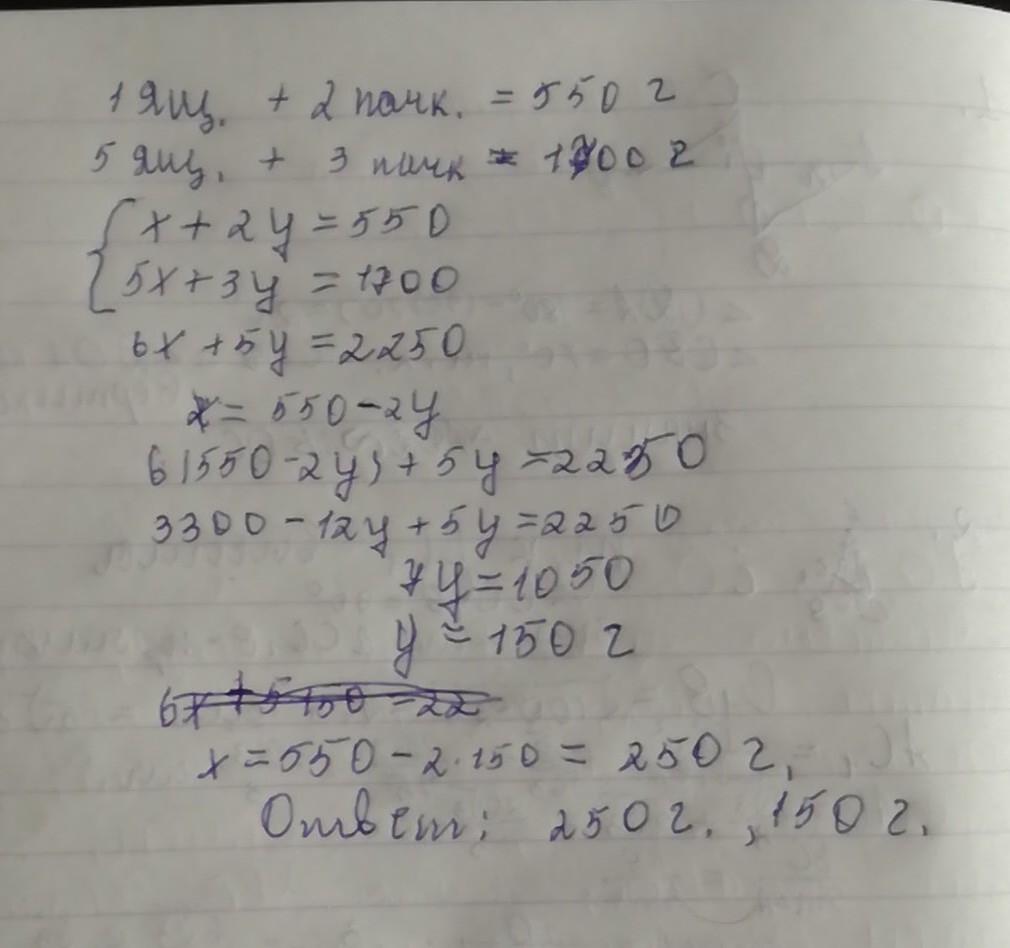 1 ящ. + 2 пачк. = 550 г
5 ящ. + 3 пачк = 1700 г
x + 2y = 550
5x + 3y = 1700
6x + 5y = 2250
x = 550 - 2y
6(550 - 2y) + 5y = 2250
3300 - 12y + 5y = 2250
7y = 1050
y = 150 г
6x + 5 150 = 22
x = 550 - 2·150 = 250 г,
Ответ: 250 г., 150 г.